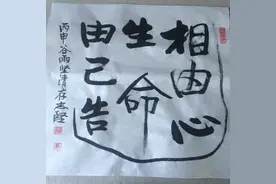 相由心
生命
由己告
丙申谷雨